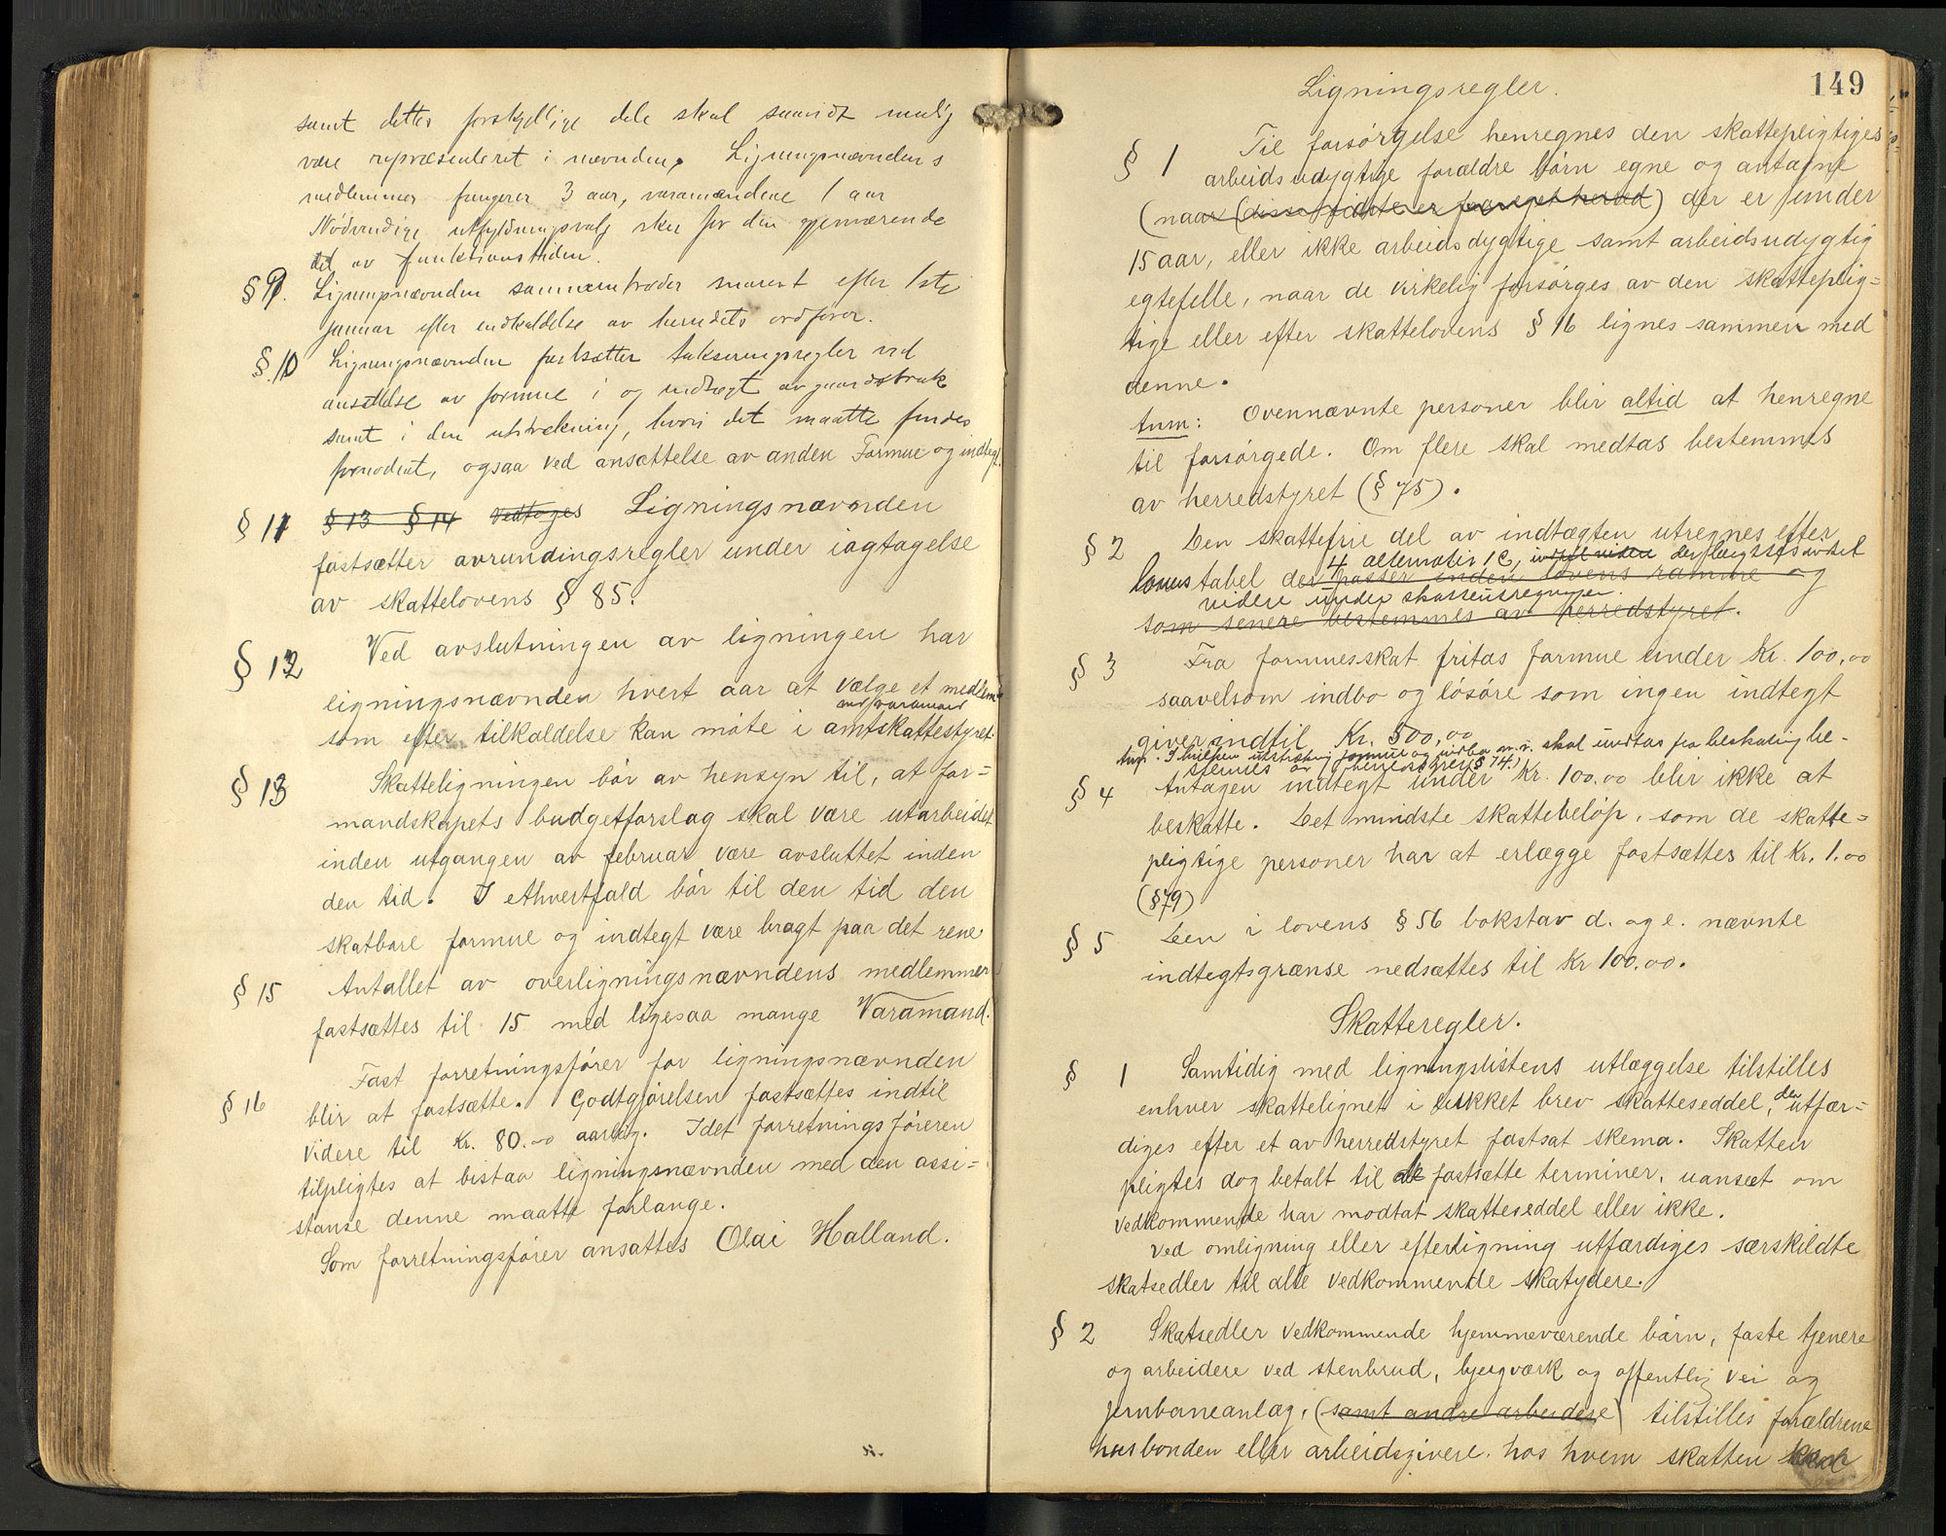 samt dettes forskjellige dele skal saavidt mulig
være repræsenteret i nævnden. Ligningsnævndens
medlemmer fungerer 3 aar, varamændene 1 aar
Nödvendige utfyldningsvalg sker for den gjenværende
del av funktionstiden.
§ 9. Ligningsnævnden sammentræder snarest efter 1ste
januar efter indkaldelse av herredets ordförer.
§ 10 Ligningsnævnden fastsætter takseringsregler ved
ansættelse av formue i og indtægt av gaardsbruk
samt i den utstrækning, hvori det maatte findes
fornödent, ogsaa ved ansættelse av anden Formue og indtægt.
§ 11 §13 §14 vedtoges Ligningsnævnden
fastsætter avrundingsregler under iagtagelse
av skattelovens § 85.
§ 12 Ved avslutningen av ligningen har
ligningsnævnden hvert aar at vælge et medlem
med varamand
som efter tilkaldelse kan möte i amtskattestyret.
§ 13 Skatteligningen bör av hensyn til, at for=
mandskapets budgetforslag skal være utarbeidet
inden utgangen av februar være avsluttet inden
den tid. I ethvertfald bör til den tid den
skatbare formue og indtegt være bragt paa det rene
§ 15 Antallet av overligningsnævndens medlemmer
fastsættes til 15 med ligesaa mange Varamænd.
Fast forretningsförer for ligningsnævnden
§ 16 blir at fastsætte. Godtgjörelsen fastsættes indtil
videre til Kr. 80.00 aarlig. Idet forretningsföreren
tilpligtes at bistaa ligningsnævnden med den assi=
stanse denne maatte forlange.
Som forretningsförer ansattes Olai Halland.
149
Ligningsregler.
§ 1 Til forsörgelse henregnes den skattepligtiges
arbeidsudygtige forældre börn egne og antagne
(naar (disse sidste er forsörget herved) der er under
15 aar, eller ikke arbeidsdygtige samt arbeidsudygtig
egtefelle, naar de virkelig forsörges av den skatteplig=
tige eller efter skattelovens § 16 lignes sammen med
denne.
Anm: Ovennævnte personer blir altid at henregne
til forsörgede. Om flere skal medtas bestemmes
av herredstyret (§ 75).
§ 2 Den skattefrie del av indtægten utregnes efter
4 alternativ 1C, indtil videre der lægges
lovens tabel der passer inden lovens ramme og
videre under skatteutregningen.
som senere bestemmes av herredstyret.
§ 3 Fra formuesskat fritas formue under Kr. 100,00
saavelsom indbo og lösöre som ingen indtegt
giver indtil Kr. 500,00
Anm. I hvilken utstrækning formue og indbo m.v. skal undtas fra beskatning be-
stemmes av herredstyret (§ 74.)
§ 4 Antagen indtegt under Kr. 100.00 blir ikke at
beskatte. Det mindste skattebelöp, som de skatte=
pligtige personer har at erlægge fastsættes til Kr. 1.00
(§79)
§ 5 Den i lovens § 56 bokstav d. og e. nævnte
indtegtsgrænse nedsættes til Kr 100.00.
Skatteregler.
§ 1 Samtidig med ligningslistens utlæggelse tilstilles
enhver skattelignet i lukket brev skatteseddel, der utfær=
diges efter et av herredstyret fastsat skema. Skatten
pligtes dog betalt til de fastsætte terminer, uansæt om
vedkommende har modtat skatteseddel eller ikke.
Ved omligning eller efterligning utfærdiges særskildte
skatsedler til alle vedkommende skatydere.
§ 2 Skatsedler vedkommende hjemmeværende börn, faste tjenere
og arbeidere ved stenbrud, bjergværk og offentlig vei og
jernbaneanlæg, (samt andre arbeidere) tilstilles forældrene
husbonden eller arbeidsgivere, hos hvem skatten skal